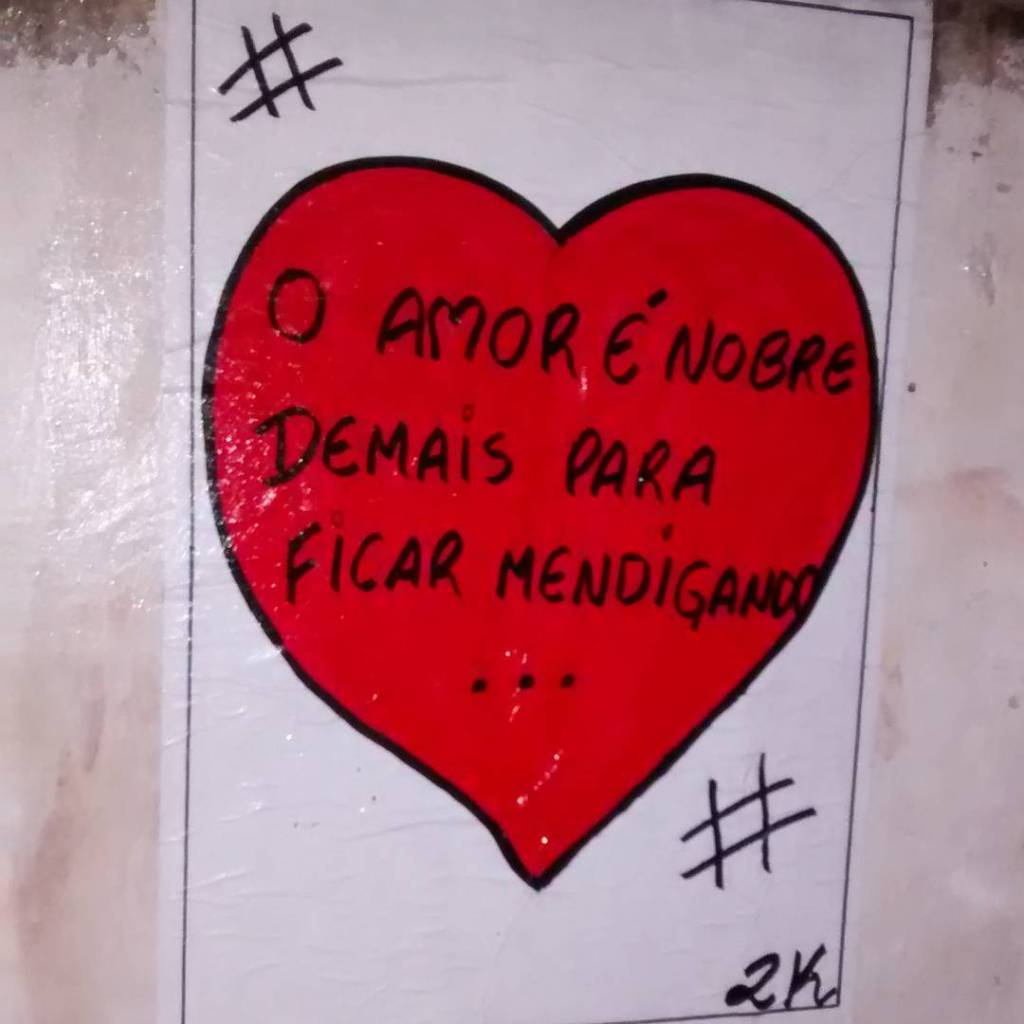 #
O AMOR É NOBRE
DEMAIS PARA
FICAR MENDIGANDO
...
#
2K